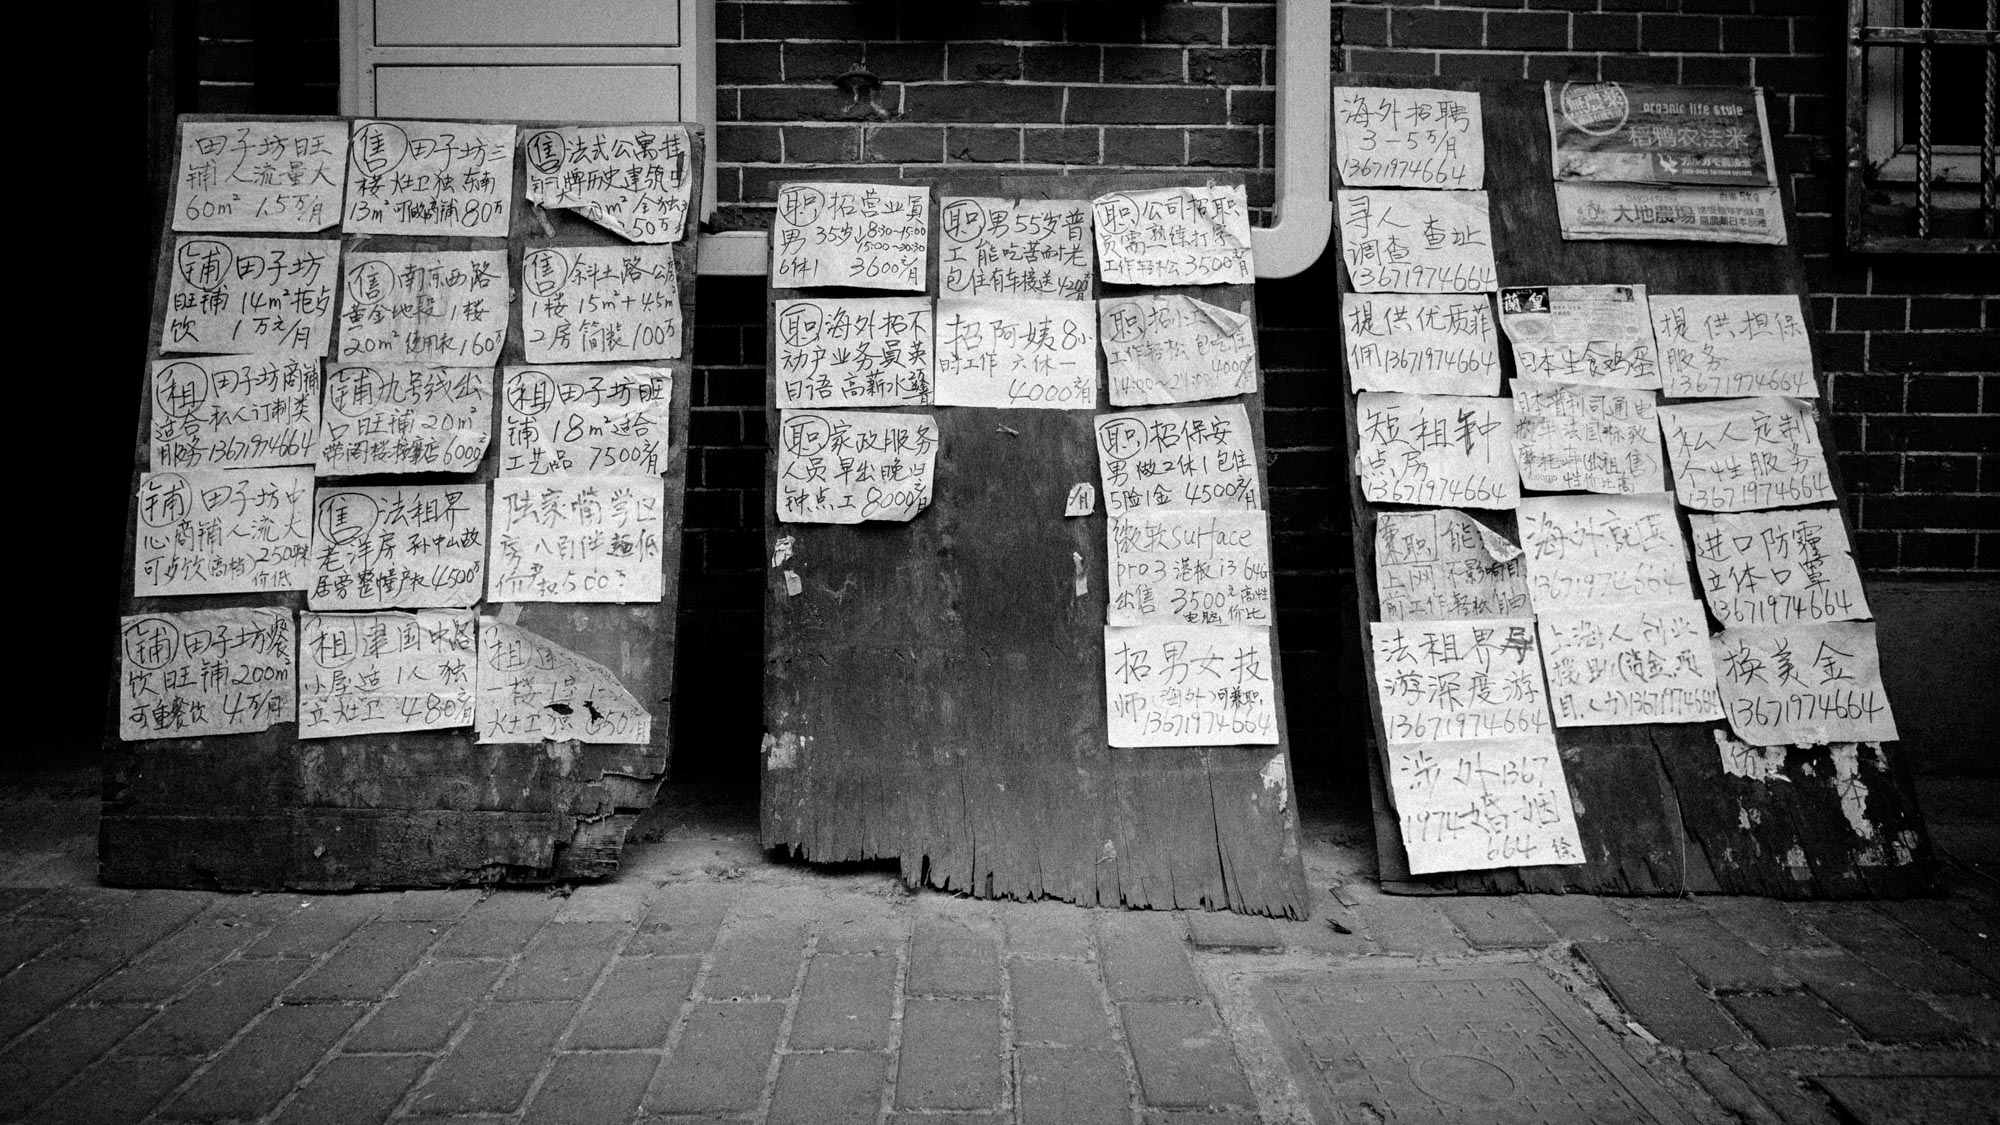 田子坊旺
铺人流量大
60m² 1.5万/月
售 田子坊三
楼灶卫独东南
13m²可做商铺80万
售 法式公寓挂
牌历史建筑
50万
铺 田子坊
旺铺 14m²拒点
饮 1万元/月
售 南京西路
黄金地段1楼
20m²使用权160万
售 斜土路公寓
1楼 15m²+4.5m²
2房 简装 100万
租 田子坊商铺
适合私人订制类
服务13671974664
铺 九号线出
口旺铺20m²
带阁楼 6000
租 田子坊旺
铺 18m²适合
工艺品 7500元/月
铺 田子坊中
心商铺人流大
可点饮(高档)
价低
售 法租界
老洋房 孙中山故
居旁整幢产权4500万
独家 学区
房 低
价
铺 田子坊餐
饮旺铺200m²
可重餐饮 4万/月
租 建国中路
小屋适1人独
立灶卫 480元/月
租
一楼
灶卫独
职 招营业员
男 35岁 8:30-15:00
15:00-20:30
6休1 3600元/月
职 男55岁普
工能吃苦耐老
包住有车接送4200元/月
职 公司招职
员需熟练打字
工作轻松3500元/月
职 海外招不
动产业务员英
日语 高薪水
招阿姨8小
时工作 六休一
4000元/月
职 招小工
工作轻松包吃住
14:00~21:00 4000元/月
职 家政服务
人员早出晚归
钟点工8000元/月
职 招保安
男 做2休1包住
5险1金 4500元/月
微软surface
pro3港板i3 64G
出售 3500元高性
电脑 价比
招男女技
师(海外)可兼职
13671974664
海外招聘
3-5万/月
13671974664
寻人
调查 查址
13671974664
提供优质菲
佣13671974664
短租钟
点房
13671974664
兼职 能
上网 不影响目
前工作轻松自由
法租界导
游深度游
13671974664
涉外1367
1974婚姻
664 徐
organic life style
稻鸭农法米
5kg
大地農場
日本生食鸡蛋
提供担保
服务
13671974664
日本普利司通电
(出租售)
性价比高
私人定制
个性服务
13671974664
海外就医
13671974664
进口防霾
立体口罩
13671974664
上海人创业
援助(资金.项
目.人力)13671974664
换美金
13671974664